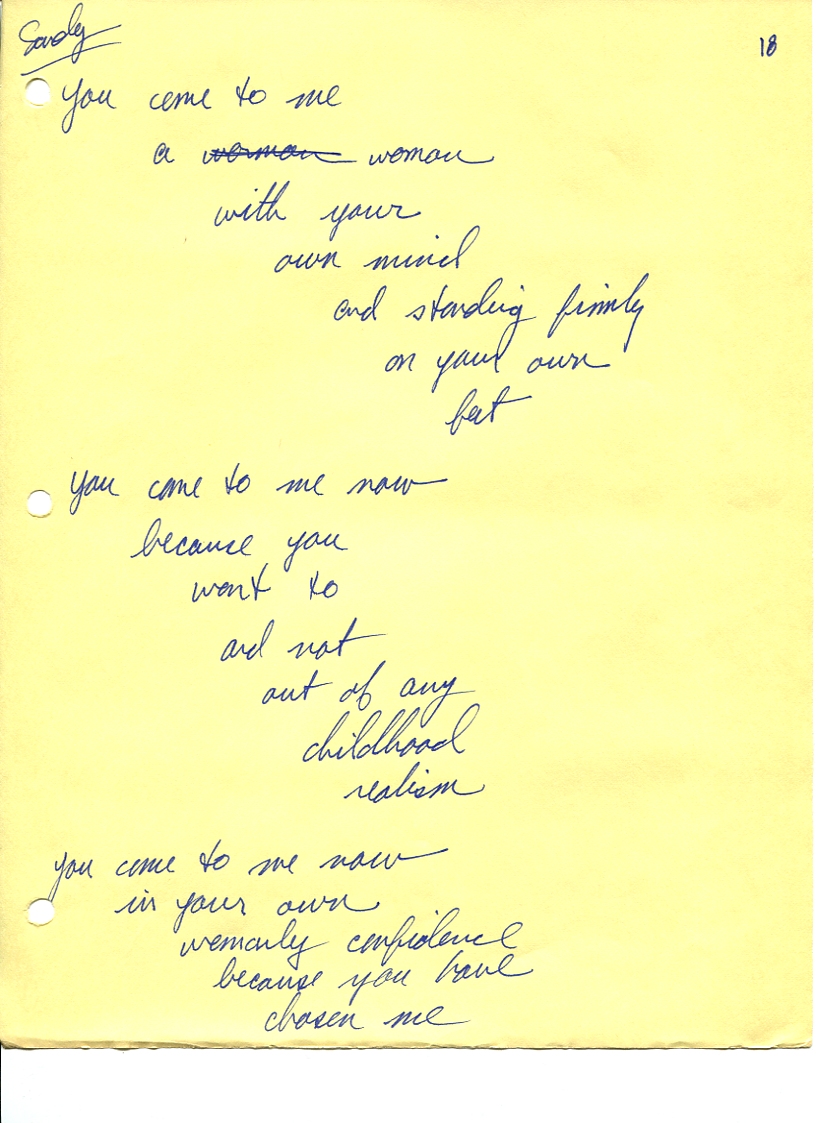 Sandy
18
you come to me
a woman woman
with your
own mind
and standing firmly
on your own
feet
you come to me now
because you
want to
and not
out of any
childhood
realism
you come to me now
in your own
womanly confidence
because you have
chosen me